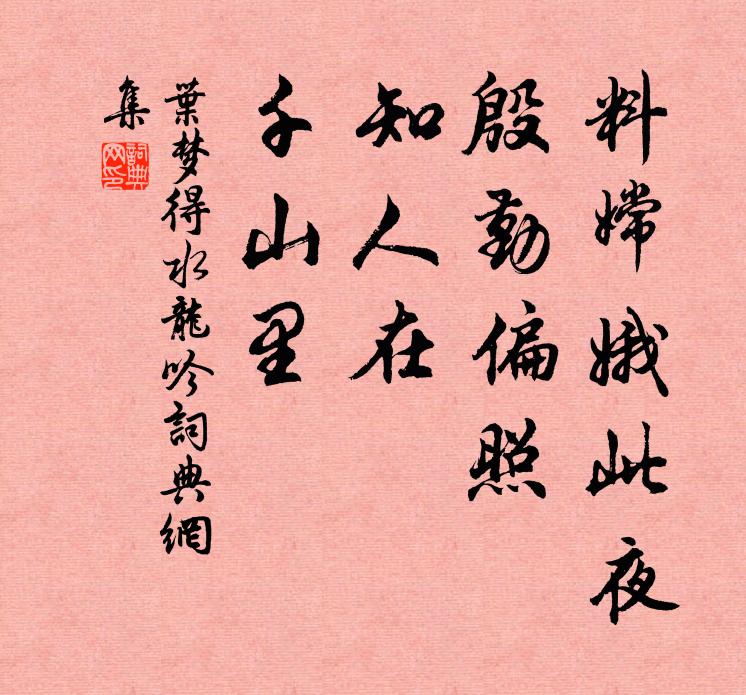 料嫦娥此夜
殷勤偏照
知人在
千山里
葉梦得水龍吟詞典網
集
詞典
网印